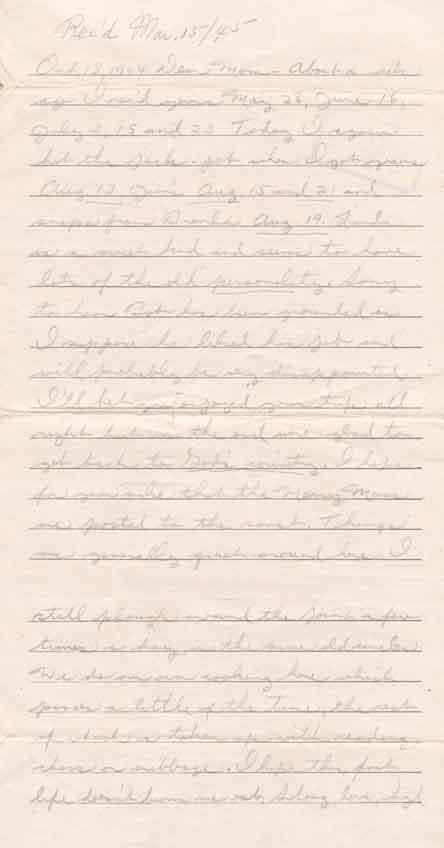 Rec'd Mar. 15/45
Oct 18, 1944 Dear Mom - About a wk
ago I rec'd yours May 28, June 16,
July 2, 15 and 23. Today I again
hit the jack-pot when I got yours
Aug 12, Aug 15 and 21 and
snaps from Aug 19.
is a sweet kid and seems to have
lots of the old personality. Sorry
to hear Bob has been grounded as
I suppose he liked his job and
will probably be very disappointed.
I'll bet you enjoyed your trip all
right but in the end were glad to
get back to God's country. I hope
for your sake that the
are posted to the south. Things
are generally quiet around here. I
still plough around the joint a few
times a day in the same old
We do our own cooking here which
passes a little of the time, the rest
of which is taken up with reading,
chess or cribbage. I hope this
life doesn't ruin me. So long, love,